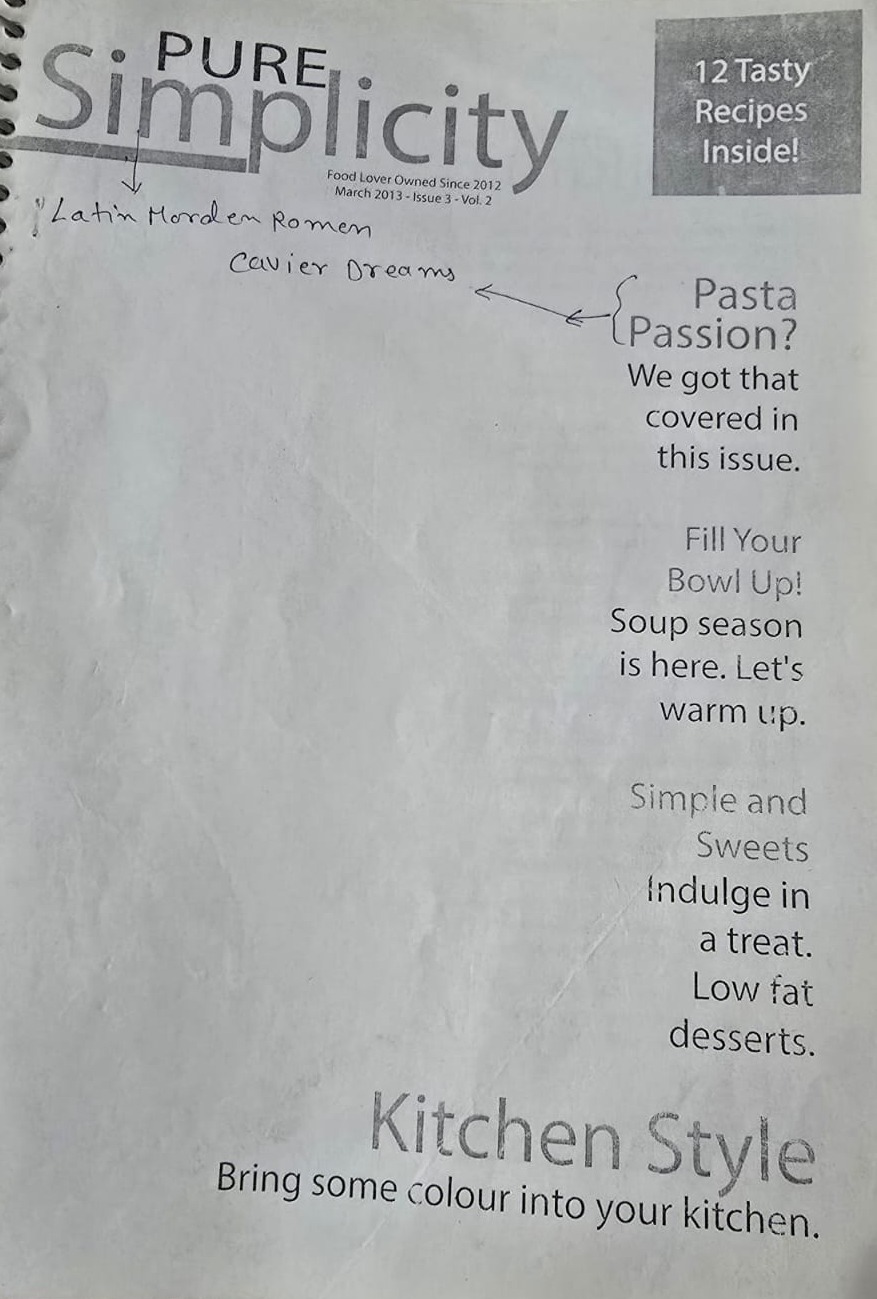 PURE
Simplicity
Food Lover Owned Since 2012
March 2013 - Issue 3 - Vol. 2
12 Tasty
Recipes
Inside!
"Latin Morden Romen
Cavier Dreams
Pasta
Passion?
We got that
covered in
this issue.
Fill Your
Bowl Up!
Soup season
is here. Let's
warm up.
Simple and
Sweets
Indulge in
a treat.
Low fat
desserts.
Kitchen Style
Bring some colour into your kitchen.